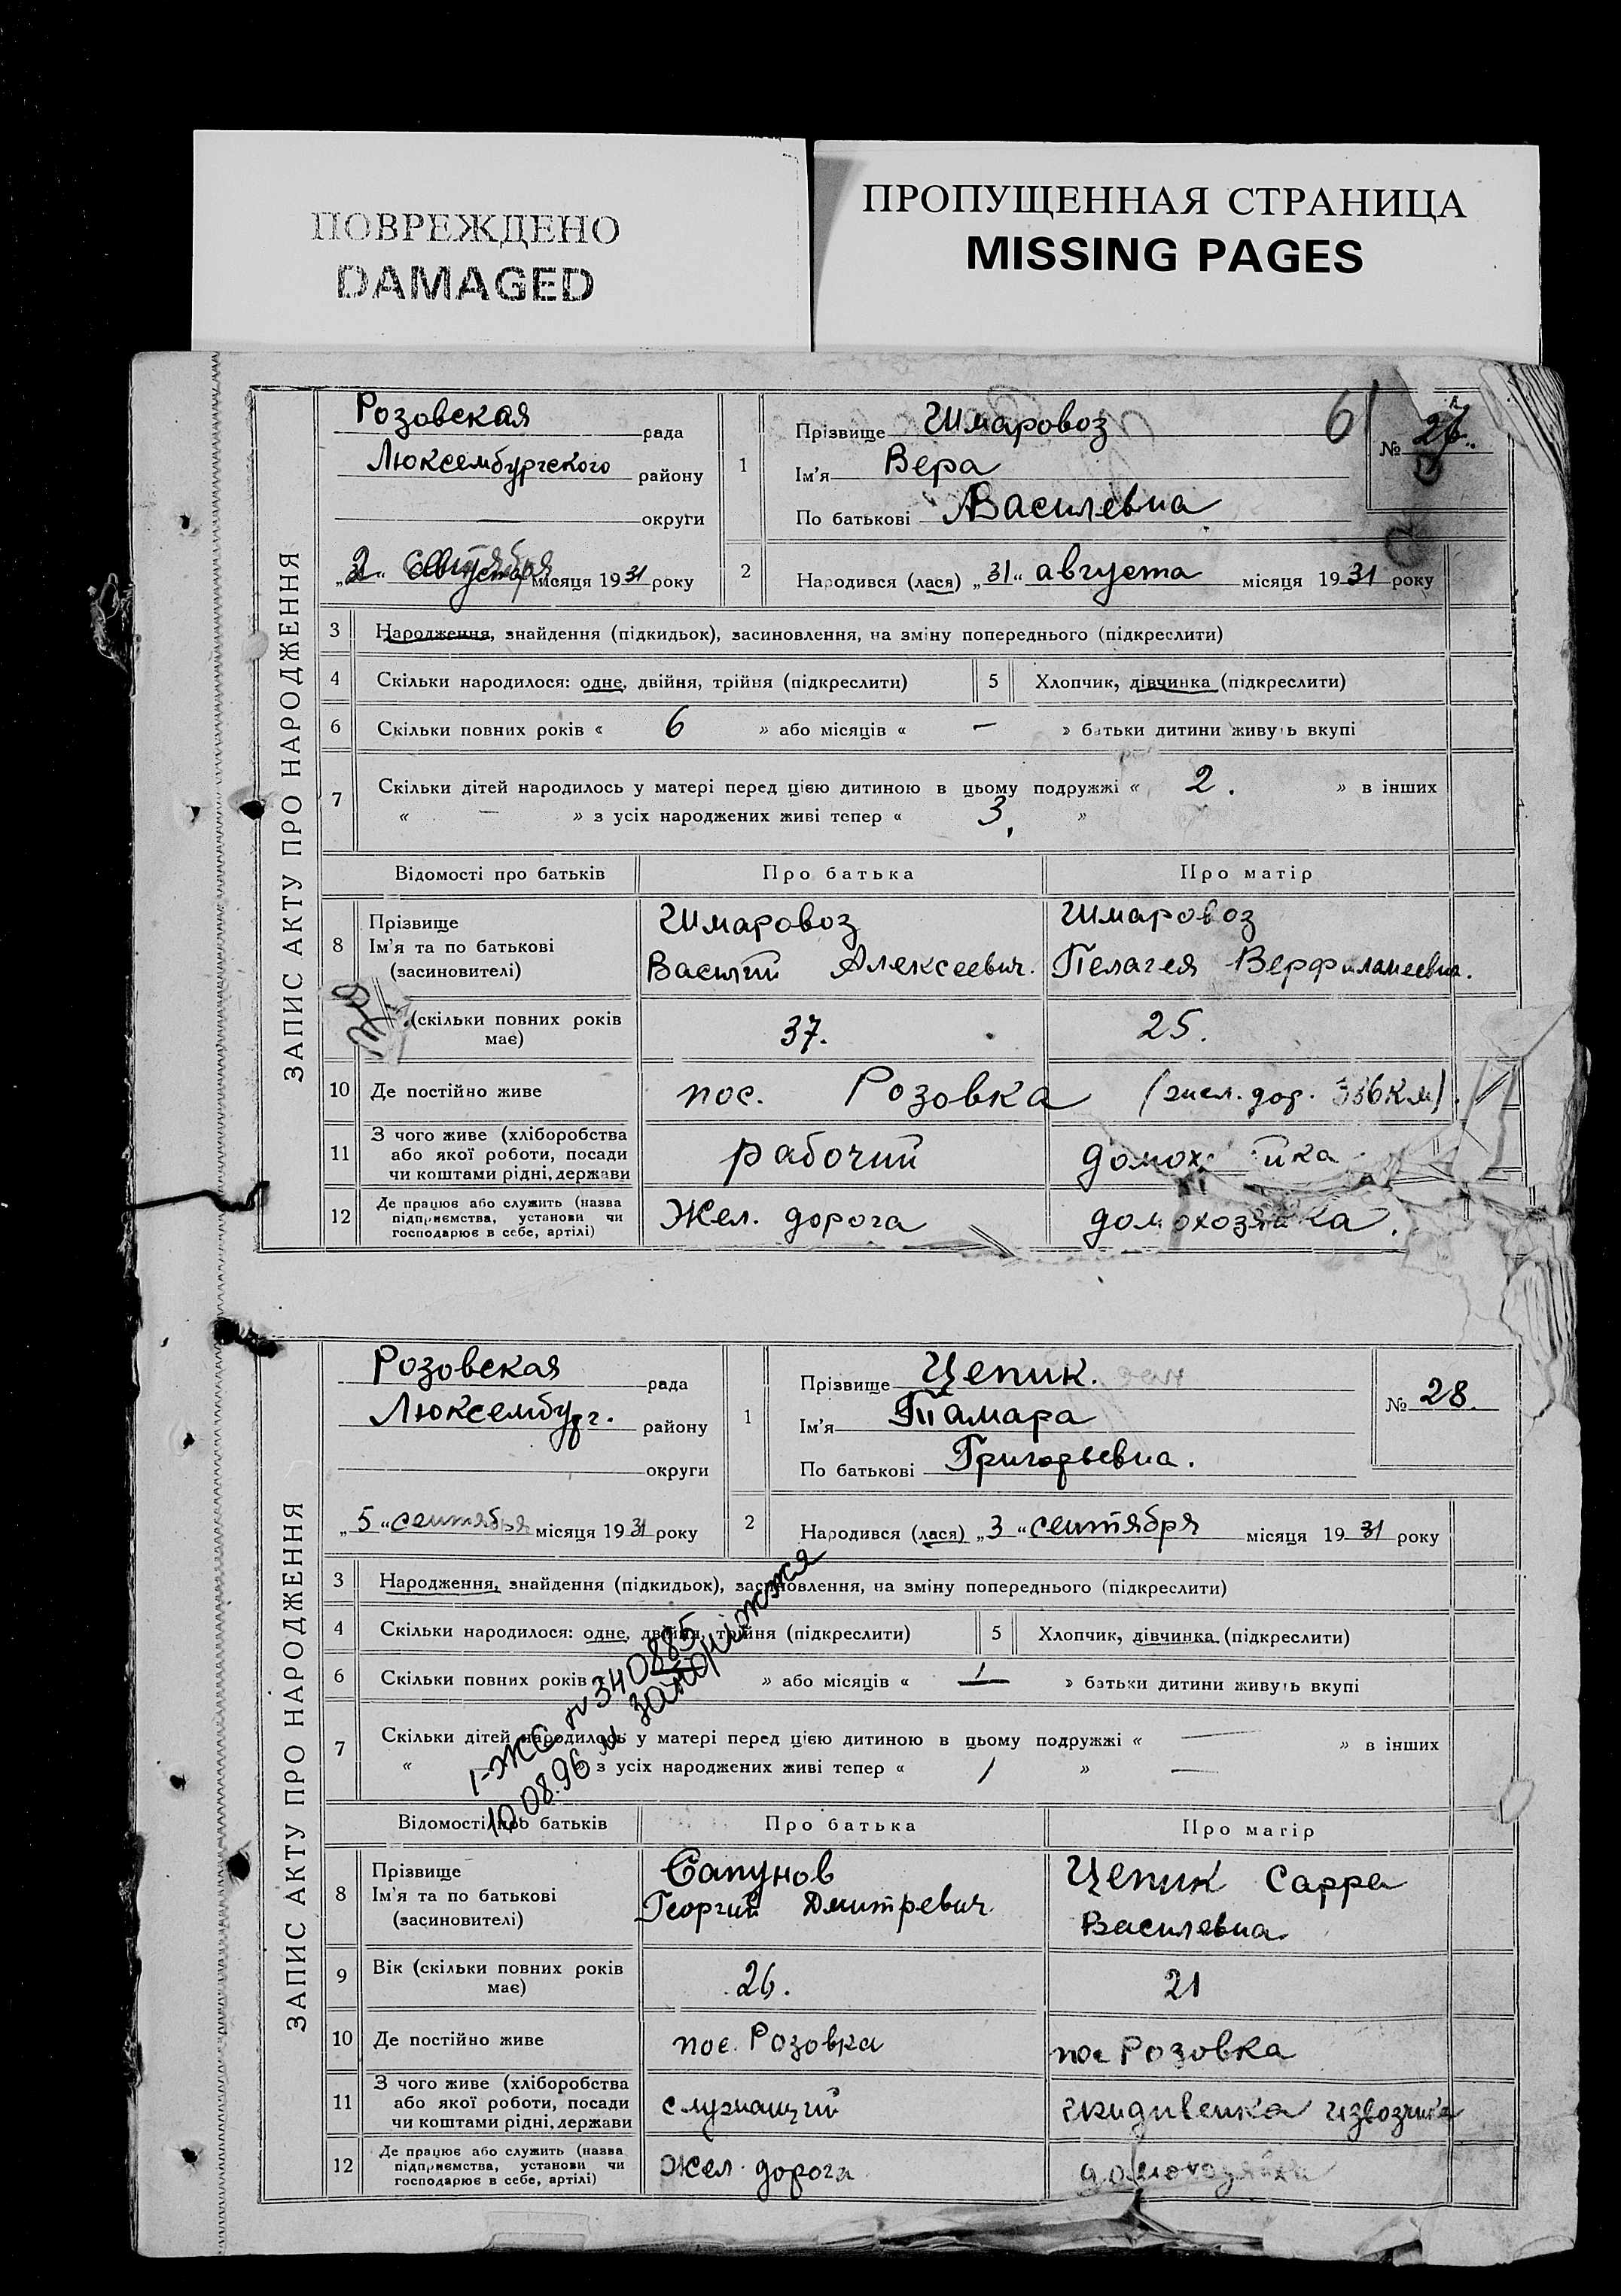 ПОВРЕЖДЕНО
DAMAGED
ПРОПУЩЕННАЯ СТРАНИЦА
MISSING PAGES
ЗАПИС АКТУ ПРО НАРОДЖЕННЯ
Розовская рада
Люксембургского району
— округи
місяця 1931 року
1
Прізвище Шмаровоз
Ім'я Вера
По батькові Василевна
6
№ 27
2
Народився (лася) „31" августа місяця 1931 року
3 Народження, знайдення (підкидьок), засиновлення, на зміну попереднього (підкреслити)
4 Скільки народилося: одне, двійня, трійня (підкреслити) 5 Хлопчик, дівчинка (підкреслити)
6 Скільки повних років « 6 » або місяців « — » батьки дитини живуть вкупі
7 Скільки дітей народилось у матері перед цією дитиною в цьому подружжі « 2. » в інших
« — » з усіх народжених живі тепер « 3, »
Відомості про батьків Про батька Про матір
8 Прізвище
Ім'я та по батькові
(засиновителі)
Шмаровоз
Василий Алексеевич.
Шмаровоз
Пелагея
(скільки повних років
має)
37.
25.
10 Де постійно живе пос. Розовка (жел. дор. 336км).
11 З чого живе (хліборобства
або якої роботи, посади
чи коштами рідні, держави
рабочий
12 Де працює або служить (назва
підприємства, установи чи
господарює в себе, артілі)
Жел. дорога
домохозяйка.
ЗАПИС АКТУ ПРО НАРОДЖЕННЯ
Розовская рада
Люксембург. району
— округи
„5" сентября місяця 1931 року
1
Прізвище Цепик.
Ім'я Тамара
По батькові Григорьевна.
№ 28.
2
Народився (лася) „3" сентября місяця 1931 року
3 Народження, знайдення (підкидьок), засиновлення, на зміну попереднього (підкреслити)
4 Скільки народилося: одне, двійня, трійня (підкреслити) 5 Хлопчик, дівчинка (підкреслити)
6 Скільки повних років » або місяців « » батьки дитини живуть вкупі
7 Скільки дітей народилось у матері перед цією дитиною в цьому подружжі « — » в інших
« » з усіх народжених живі тепер « 1 » —
1-ЖС № 340885
10.08.96 м Запоріжжя
Відомості про батьків Про батька Про матір
8 Прізвище
Ім'я та по батькові
(засиновителі)
Сапунов
Георгий Дмитревич
Цепик Сарра
Василевна
9 Вік (скільки повних років
має)
26.
21
10 Де постійно живе пос. Розовка пос Розовка
11 З чого живе (хліборобства
або якої роботи, посади
чи коштами рідні, держави
служащий
иждивенка извозчика
12 Де працює або служить (назва
підприємства, установи чи
господарює в себе, артілі)
Жел. дорога
домохозяйка